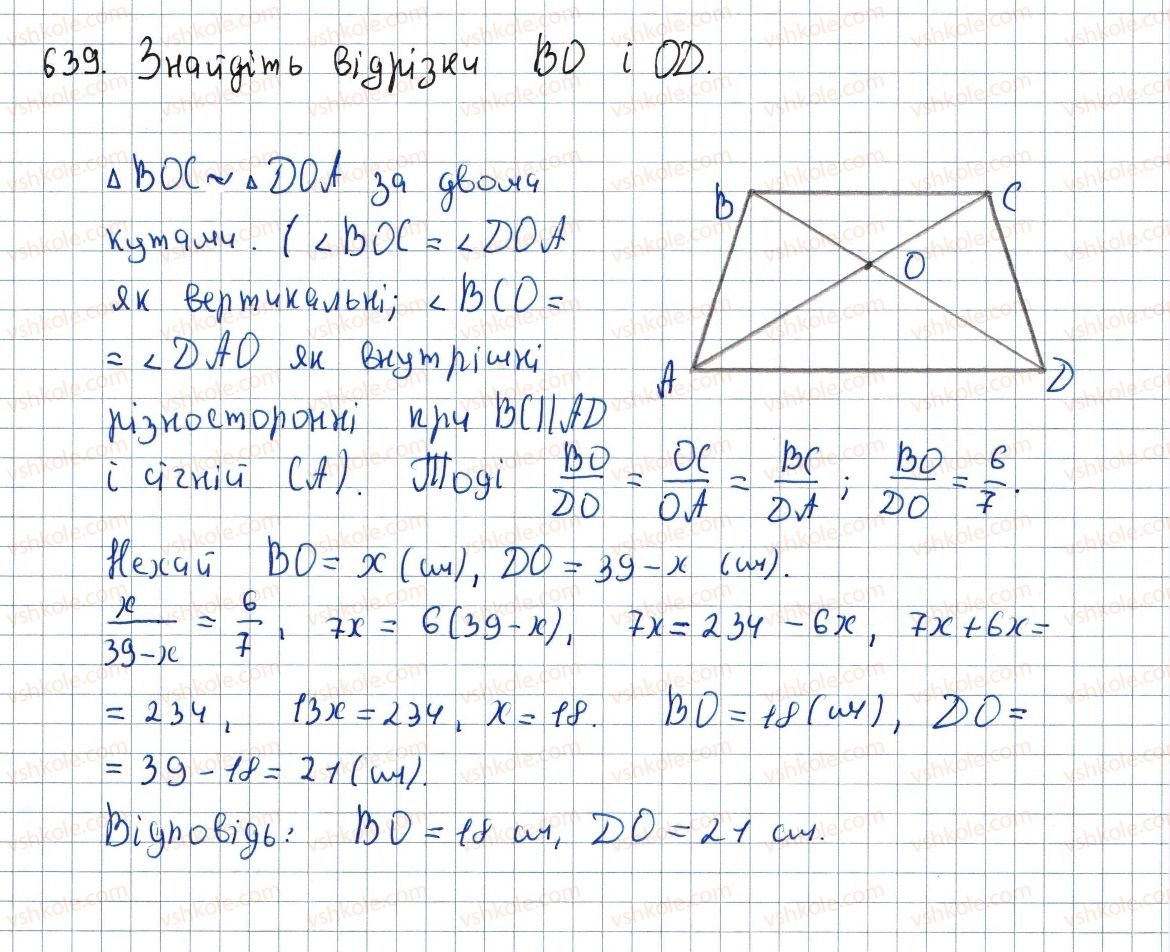 639. Знайдіть відрізки BO і OD.
△BOC ~ △DOA за двома
кутами. (∠BOC = ∠DOA
як вертикальні; ∠BCO =
= ∠DAO як внутрішні
різносторонні при BC||AD
і січній CA). Тоді BO/DO = OC/OA = BC/DA; BO/DO = 6/7.
Нехай BO = x (см), DO = 39 - x (см).
x/(39-x) = 6/7, 7x = 6(39-x), 7x = 234 - 6x, 7x + 6x =
= 234, 13x = 234, x = 18. BO = 18 (см), DO =
= 39 - 18 = 21 (см).
Відповідь: BO = 18 см, DO = 21 см.
B
C
O
A
D
vshkole.com